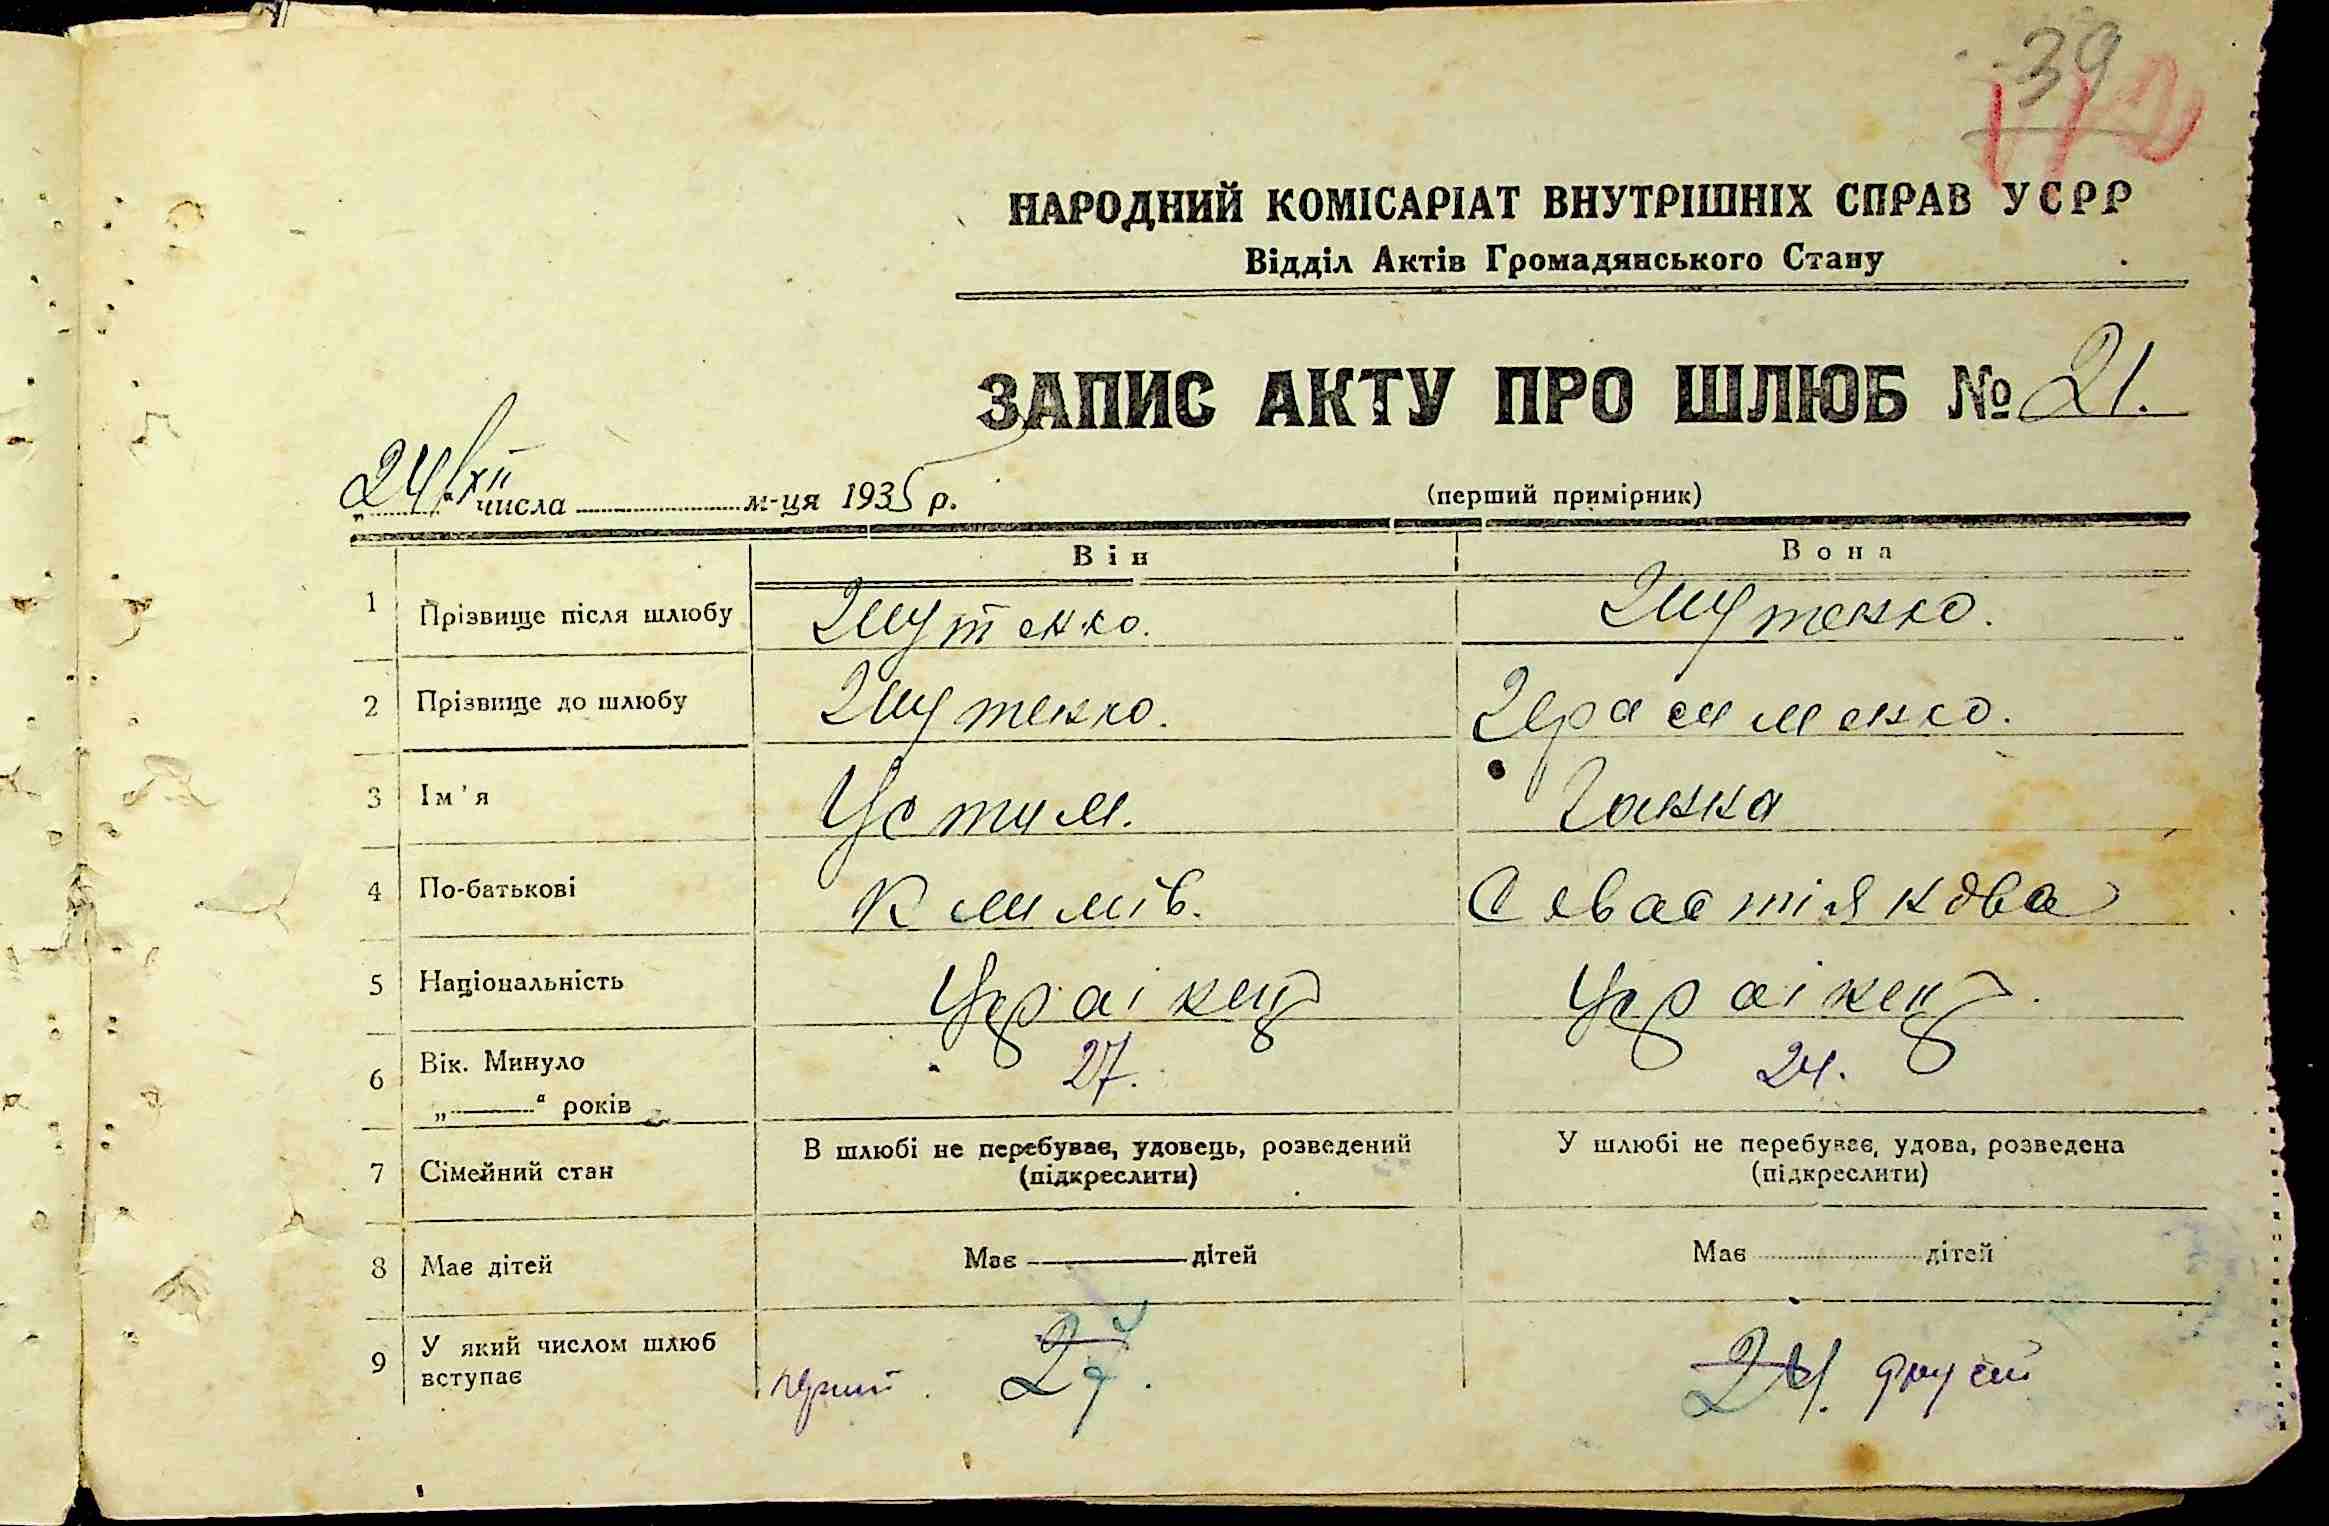 39
112
НАРОДНИЙ КОМІСАРІАТ ВНУТРІШНІХ СПРАВ УСРР
Відділ Актів Громадянського Стану
ЗАПИС АКТУ ПРО ШЛЮБ № 21.
„24/XII“ числа м-ця 1935 р.
(перший примірник)
Він Вона
1 Прізвище після шлюбу Шутенко. Шутенко.
2 Прізвище до шлюбу Шутенко. Герасименко.
3 Ім'я Устим. Ганна
4 По-батькові Климів. Севастіянова
5 Національність Украінец Украінец.
6 Вік. Минуло 27. 24.
„———“ років
7 Сімейний стан В шлюбі не перебуває, удовець, розведений У шлюбі не перебуває, удова, розведена
(підкреслити) (підкреслити)
8 Має дітей Має ——— дітей Має дітей
9 У який числом шлюб
вступає перший. 27. 24. другий